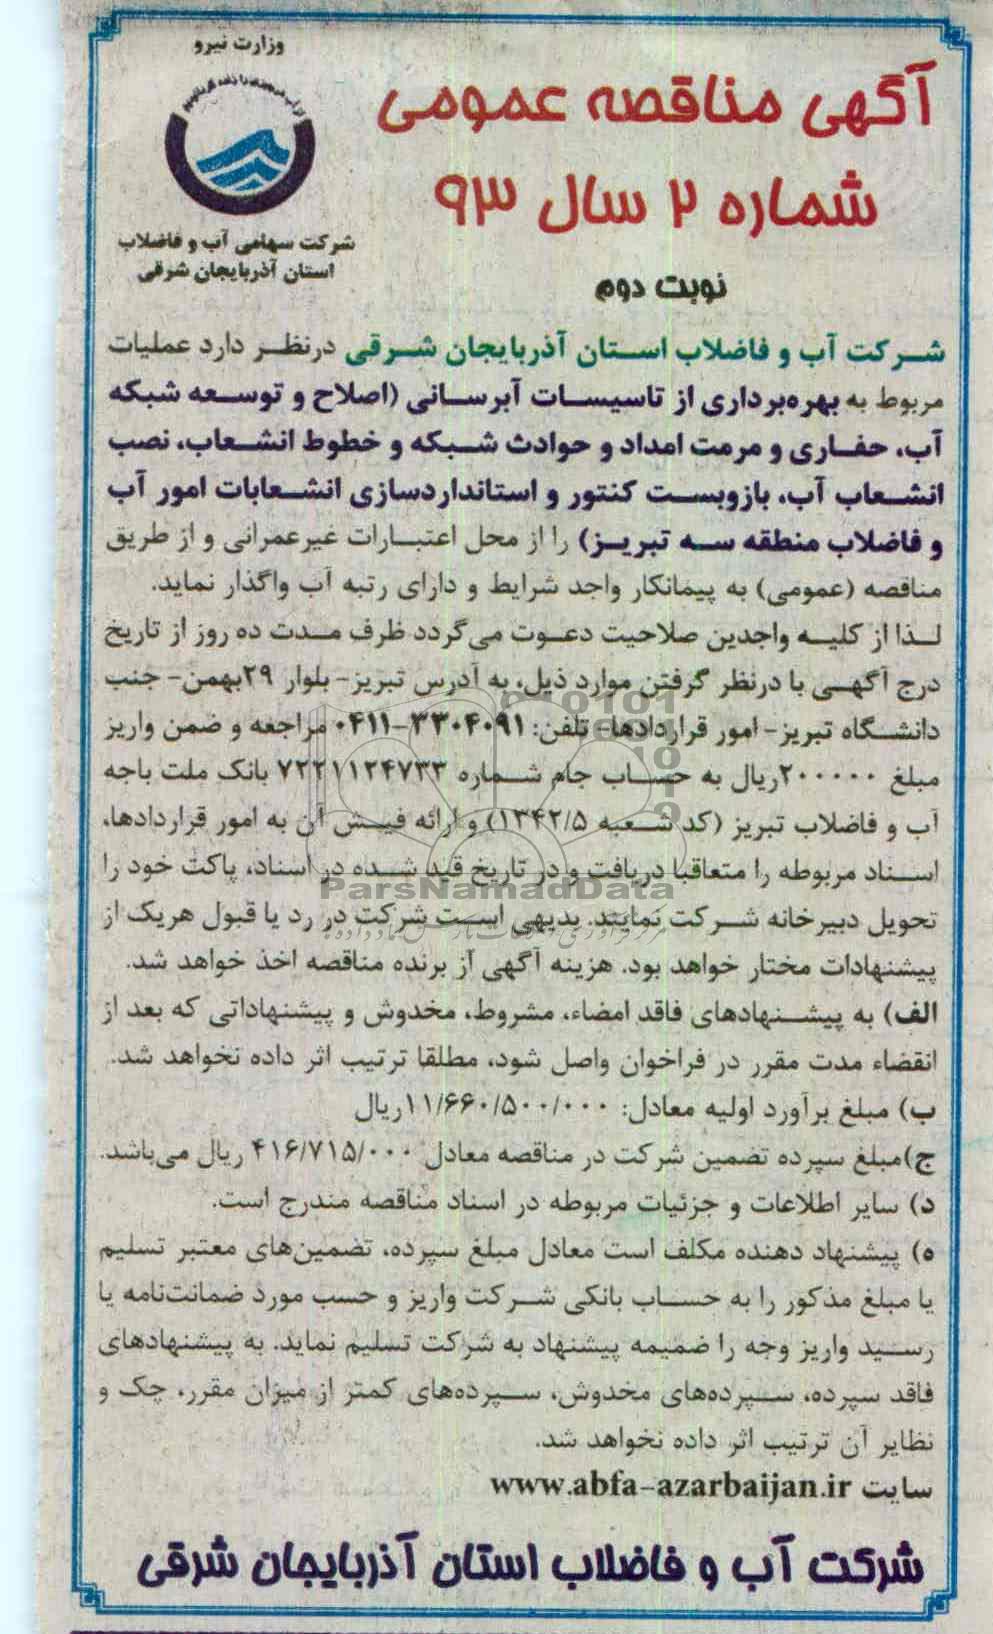 وزارت نیرو
شرکت سهامی آب و فاضلاب
استان آذربایجان شرقی
آگهی مناقصه عمومی
شماره ۲ سال ۹۳
نوبت دوم
شرکت آب و فاضلاب استان آذربایجان شرقی درنظر دارد عملیات
مربوط به بهره‌برداری از تاسیسات آبرسانی (اصلاح و توسعه شبکه
آب، حفاری و مرمت امداد و حوادث شبکه و خطوط انشعاب، نصب
انشعاب آب، بازوبست کنتور و استانداردسازی انشعابات امور آب
و فاضلاب منطقه سه تبریز) را از محل اعتبارات غیرعمرانی و از طریق
مناقصه (عمومی) به پیمانکار واجد شرایط و دارای رتبه آب واگذار نماید.
لذا از کلیه واجدین صلاحیت دعوت می‌گردد ظرف مدت ده روز از تاریخ
درج آگهی با درنظر گرفتن موارد ذیل، به آدرس تبریز- بلوار ۲۹بهمن- جنب
دانشگاه تبریز- امور قراردادها- تلفن: ۳۳۰۴۰۹۱-۰۴۱۱ مراجعه و ضمن واریز
مبلغ ۲۰۰۰۰۰ریال به حساب جام شماره ۷۲۲۱۱۲۴۷۳۳ بانک ملت باجه
آب و فاضلاب تبریز (کد شعبه ۱۳۴۲/۵) و ارائه فیش آن به امور قراردادها،
اسناد مربوطه را متعاقبا دریافت و در تاریخ قید شده در اسناد، پاکت خود را
تحویل دبیرخانه شرکت نمایند. بدیهی است شرکت در رد یا قبول هریک از
پیشنهادات مختار خواهد بود. هزینه آگهی از برنده مناقصه اخذ خواهد شد.
الف) به پیشنهادهای فاقد امضاء، مشروط، مخدوش و پیشنهاداتی که بعد از
انقضاء مدت مقرر در فراخوان واصل شود، مطلقا ترتیب اثر داده نخواهد شد.
ب) مبلغ برآورد اولیه معادل: ۱۱/۶۶۰/۵۰۰/۰۰۰ریال
ج)مبلغ سپرده تضمین شرکت در مناقصه معادل ۴۱۶/۷۱۵/۰۰۰ ریال می‌باشد.
د) سایر اطلاعات و جزئیات مربوطه در اسناد مناقصه مندرج است.
ه) پیشنهاد دهنده مکلف است معادل مبلغ سپرده، تضمین‌های معتبر تسلیم
یا مبلغ مذکور را به حساب بانکی شرکت واریز و حسب مورد ضمانت‌نامه یا
رسید واریز وجه را ضمیمه پیشنهاد به شرکت تسلیم نماید. به پیشنهادهای
فاقد سپرده، سپرده‌های مخدوش، سپرده‌های کمتر از میزان مقرر، چک و
نظایر آن ترتیب اثر داده نخواهد شد.
سایت www.abfa-azarbaijan.ir
شرکت آب و فاضلاب استان آذربایجان شرقی
ParsNamadData